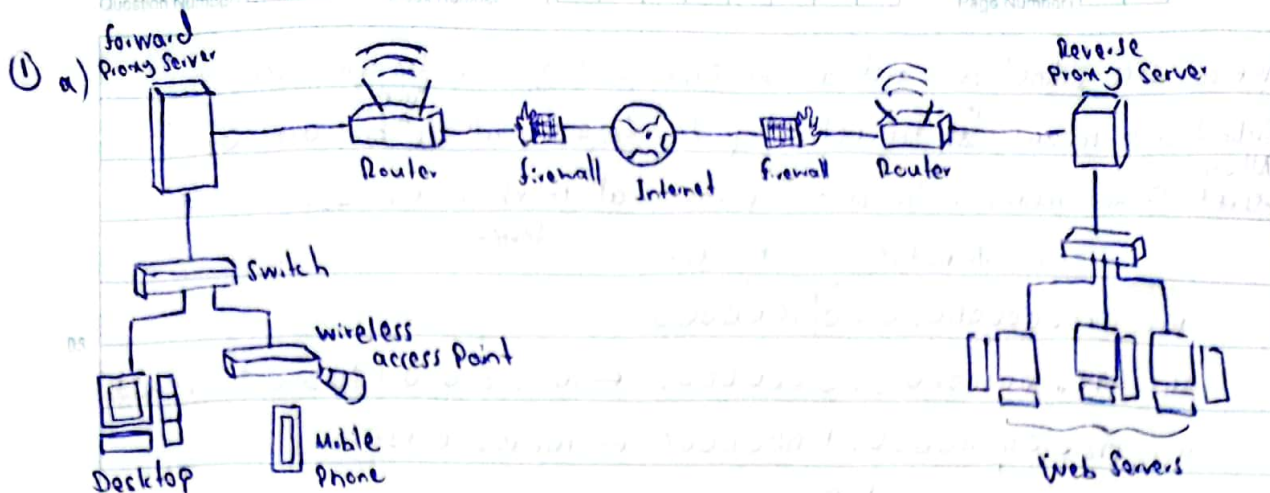 ① a)
forward
Proxy Server
Router
firewall
Internet
firewall
Router
Reverse
Proxy Server
Switch
wireless
access Point
Desktop
Moble
Phone
Web Servers